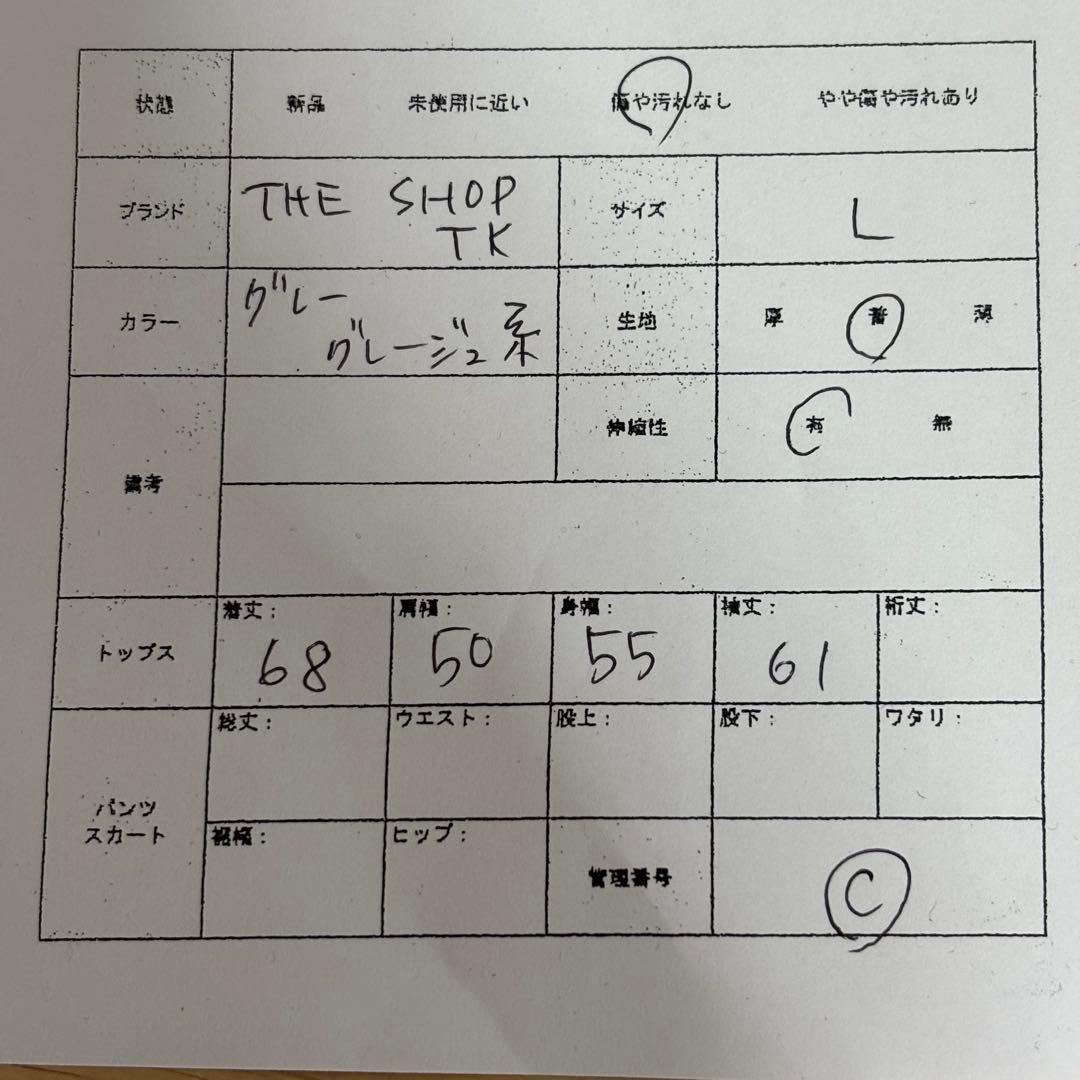 状態 新品 未使用に近い 傷や汚れなし やや傷や汚れあり
ブランド THE SHOP TK サイズ L
カラー グレー グレージュ系 生地 厚 普 薄
備考 伸縮性 有 無
トップス 着丈: 68 肩幅: 50 身幅: 55 袖丈: 61 裄丈:
パンツ スカート 総丈: ウエスト: 股上: 股下: ワタリ:
裾幅: ヒップ: 管理番号 C